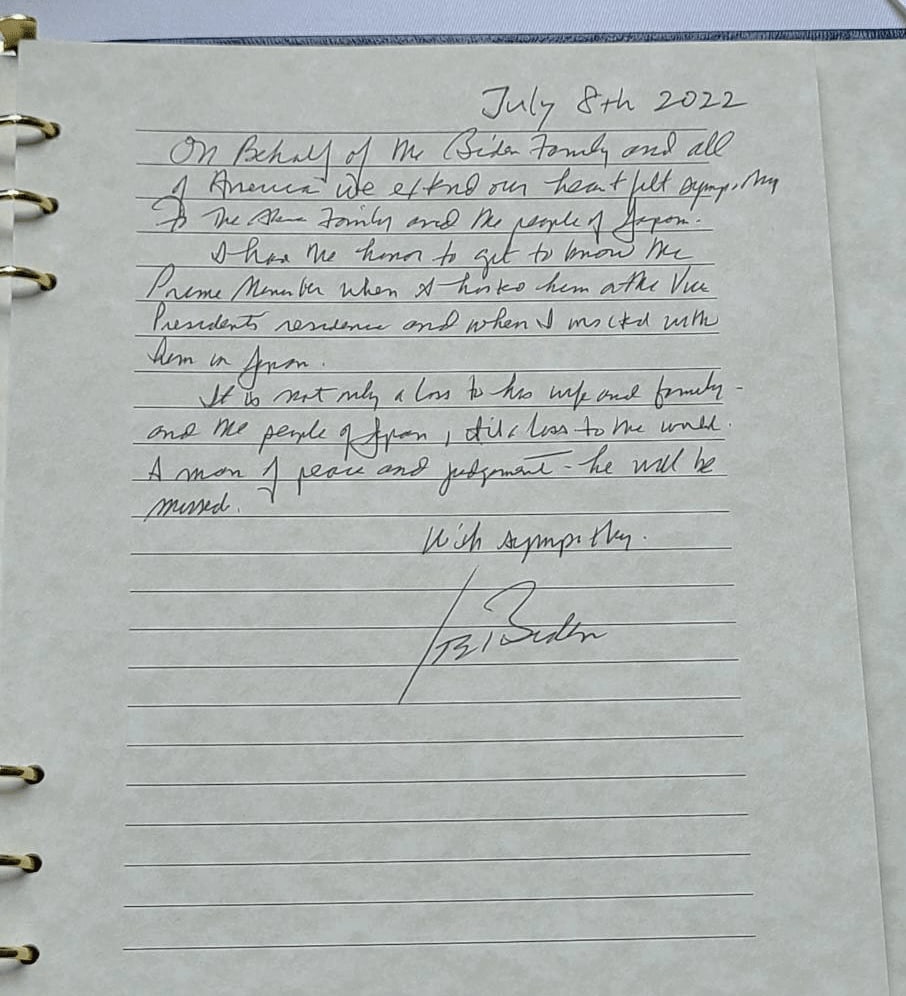 July 8th 2022
On Behalf of the Biden Family and all
of America we extend our heartfelt sympathy
To the Abe Family and the people of Japan.
I had the honor to get to know the
Prime Minister when I hosted him at the Vice
Presidents residence and when I visited with
him in Japan.
It is not only a loss to his wife and family -
and the people of Japan, loss to the world.
A man of peace and judgement - he will be
missed.
With sympathy.
Biden